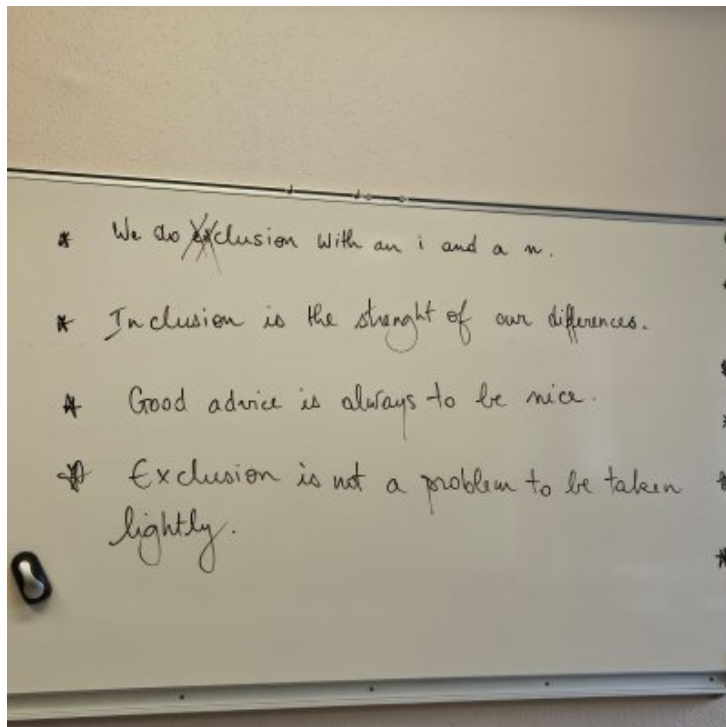 * We do exclusion with an i and a n.
* Inclusion is the strenght of our differences.
* Good advice is always to be nice.
* Exclusion is not a problem to be taken
lightly.